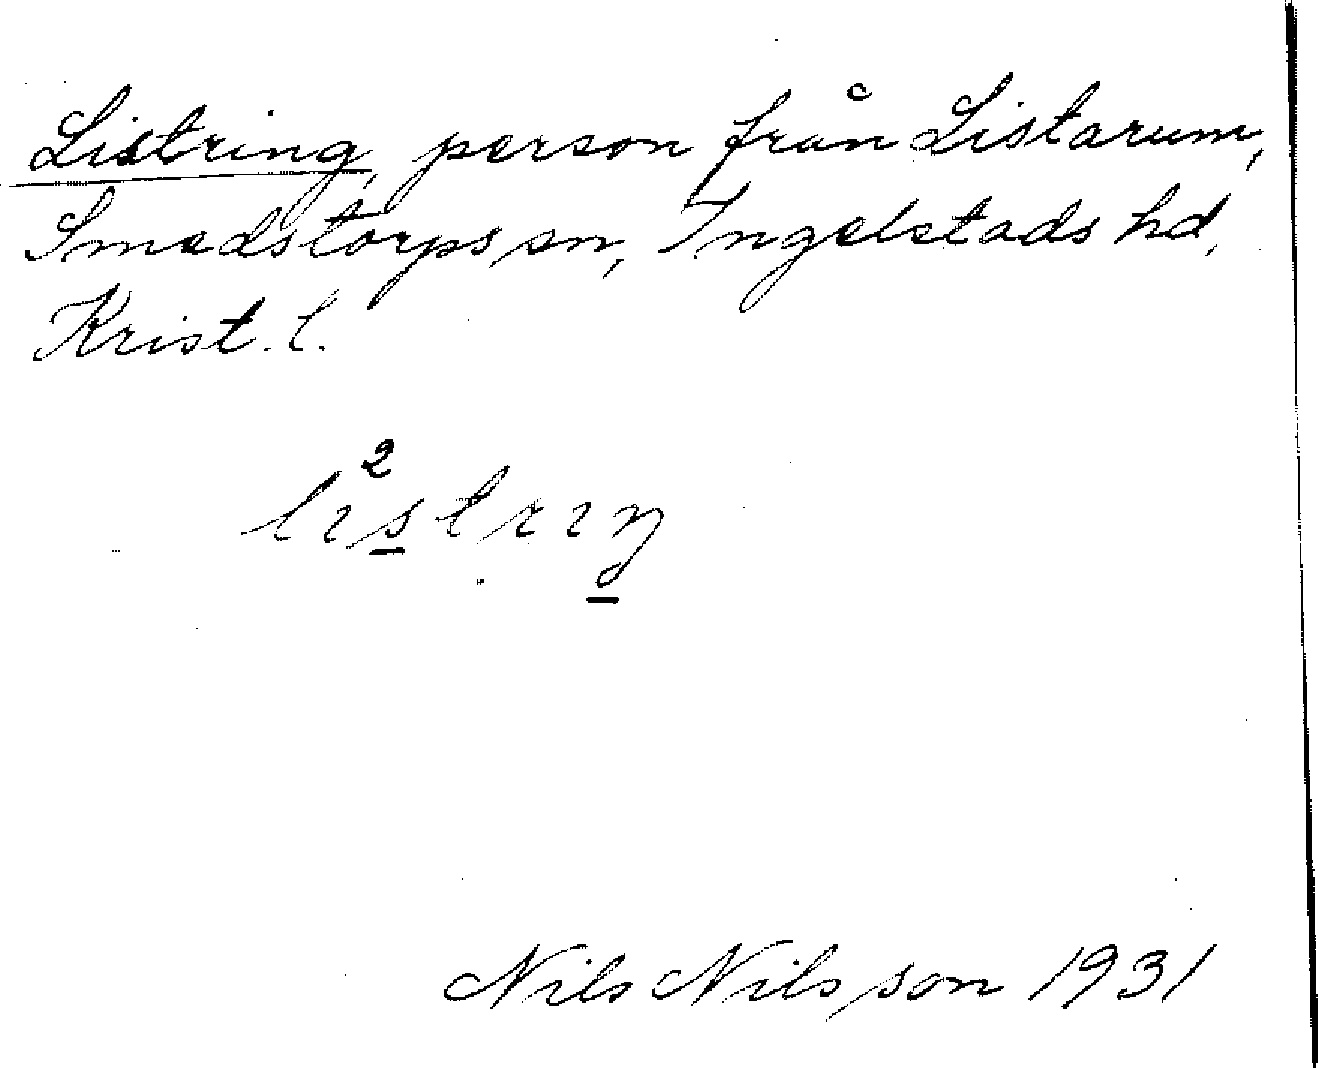 Listring, person från Listarum,
Smedstorps sn, Ingelstads hd,
Krist. l.
Nils Nilsson 1931